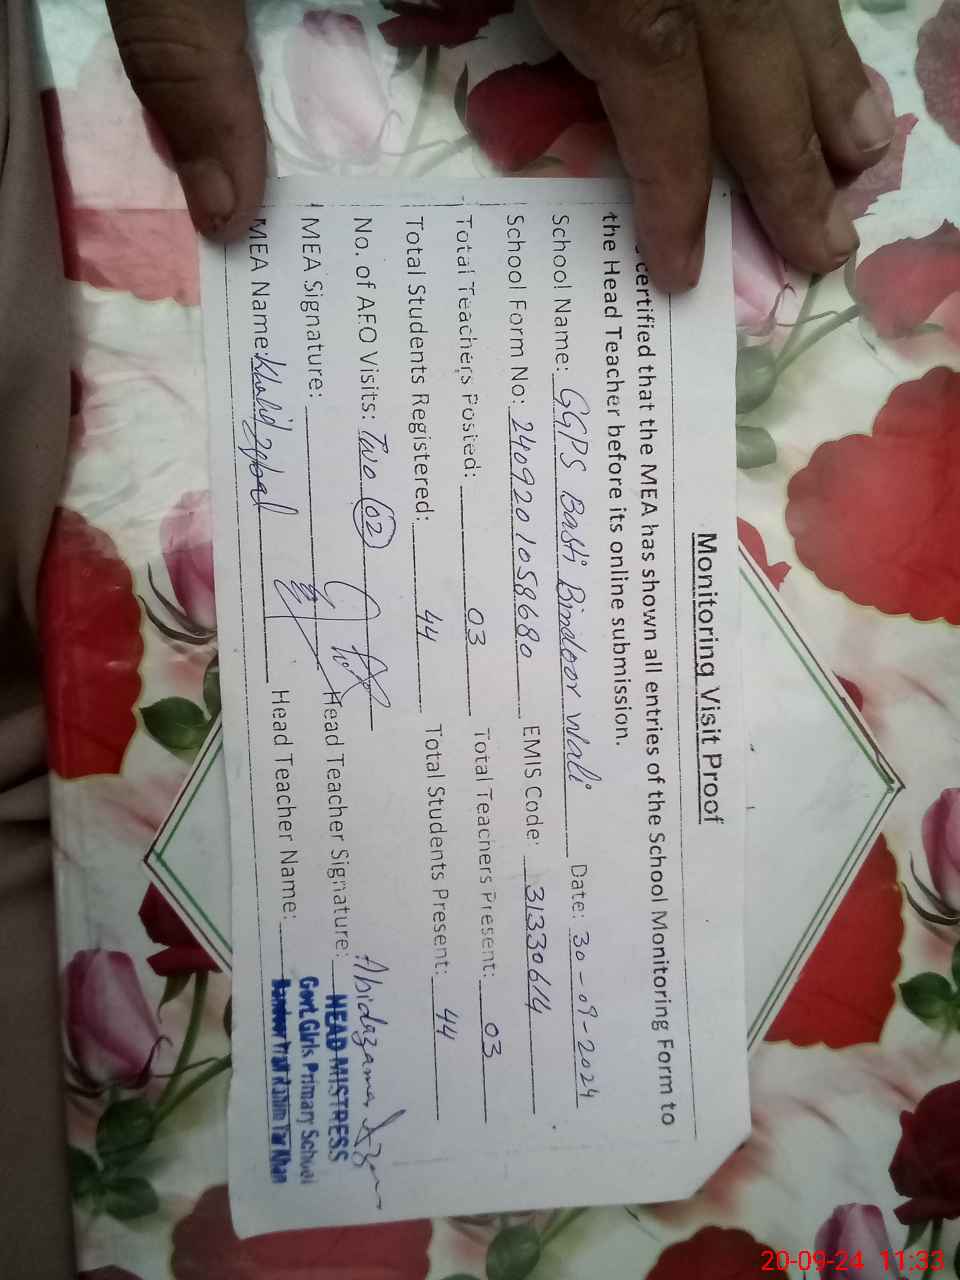 Monitoring Visit Proof
certified that the MEA has shown all entries of the School Monitoring Form to
the Head Teacher before its online submission.
School Name: GGPS Basti Bindoor Wali Date: 30-09-2024
School Form No: 2409201058680 EMIS Code: 31330614
Total Teachers Posted: 03 Total Teachers Present: 03
Total Students Registered: 44 Total Students Present: 44
No. of AEO Visits: Two (02)
MEA Signature: Head Teacher Signature:
MEA Name: Khalid Iqbal Head Teacher Name:
HEAD MISTRESS
Govt. Girls Primary School
Rahim Yar Khan
20-09-24 11:33